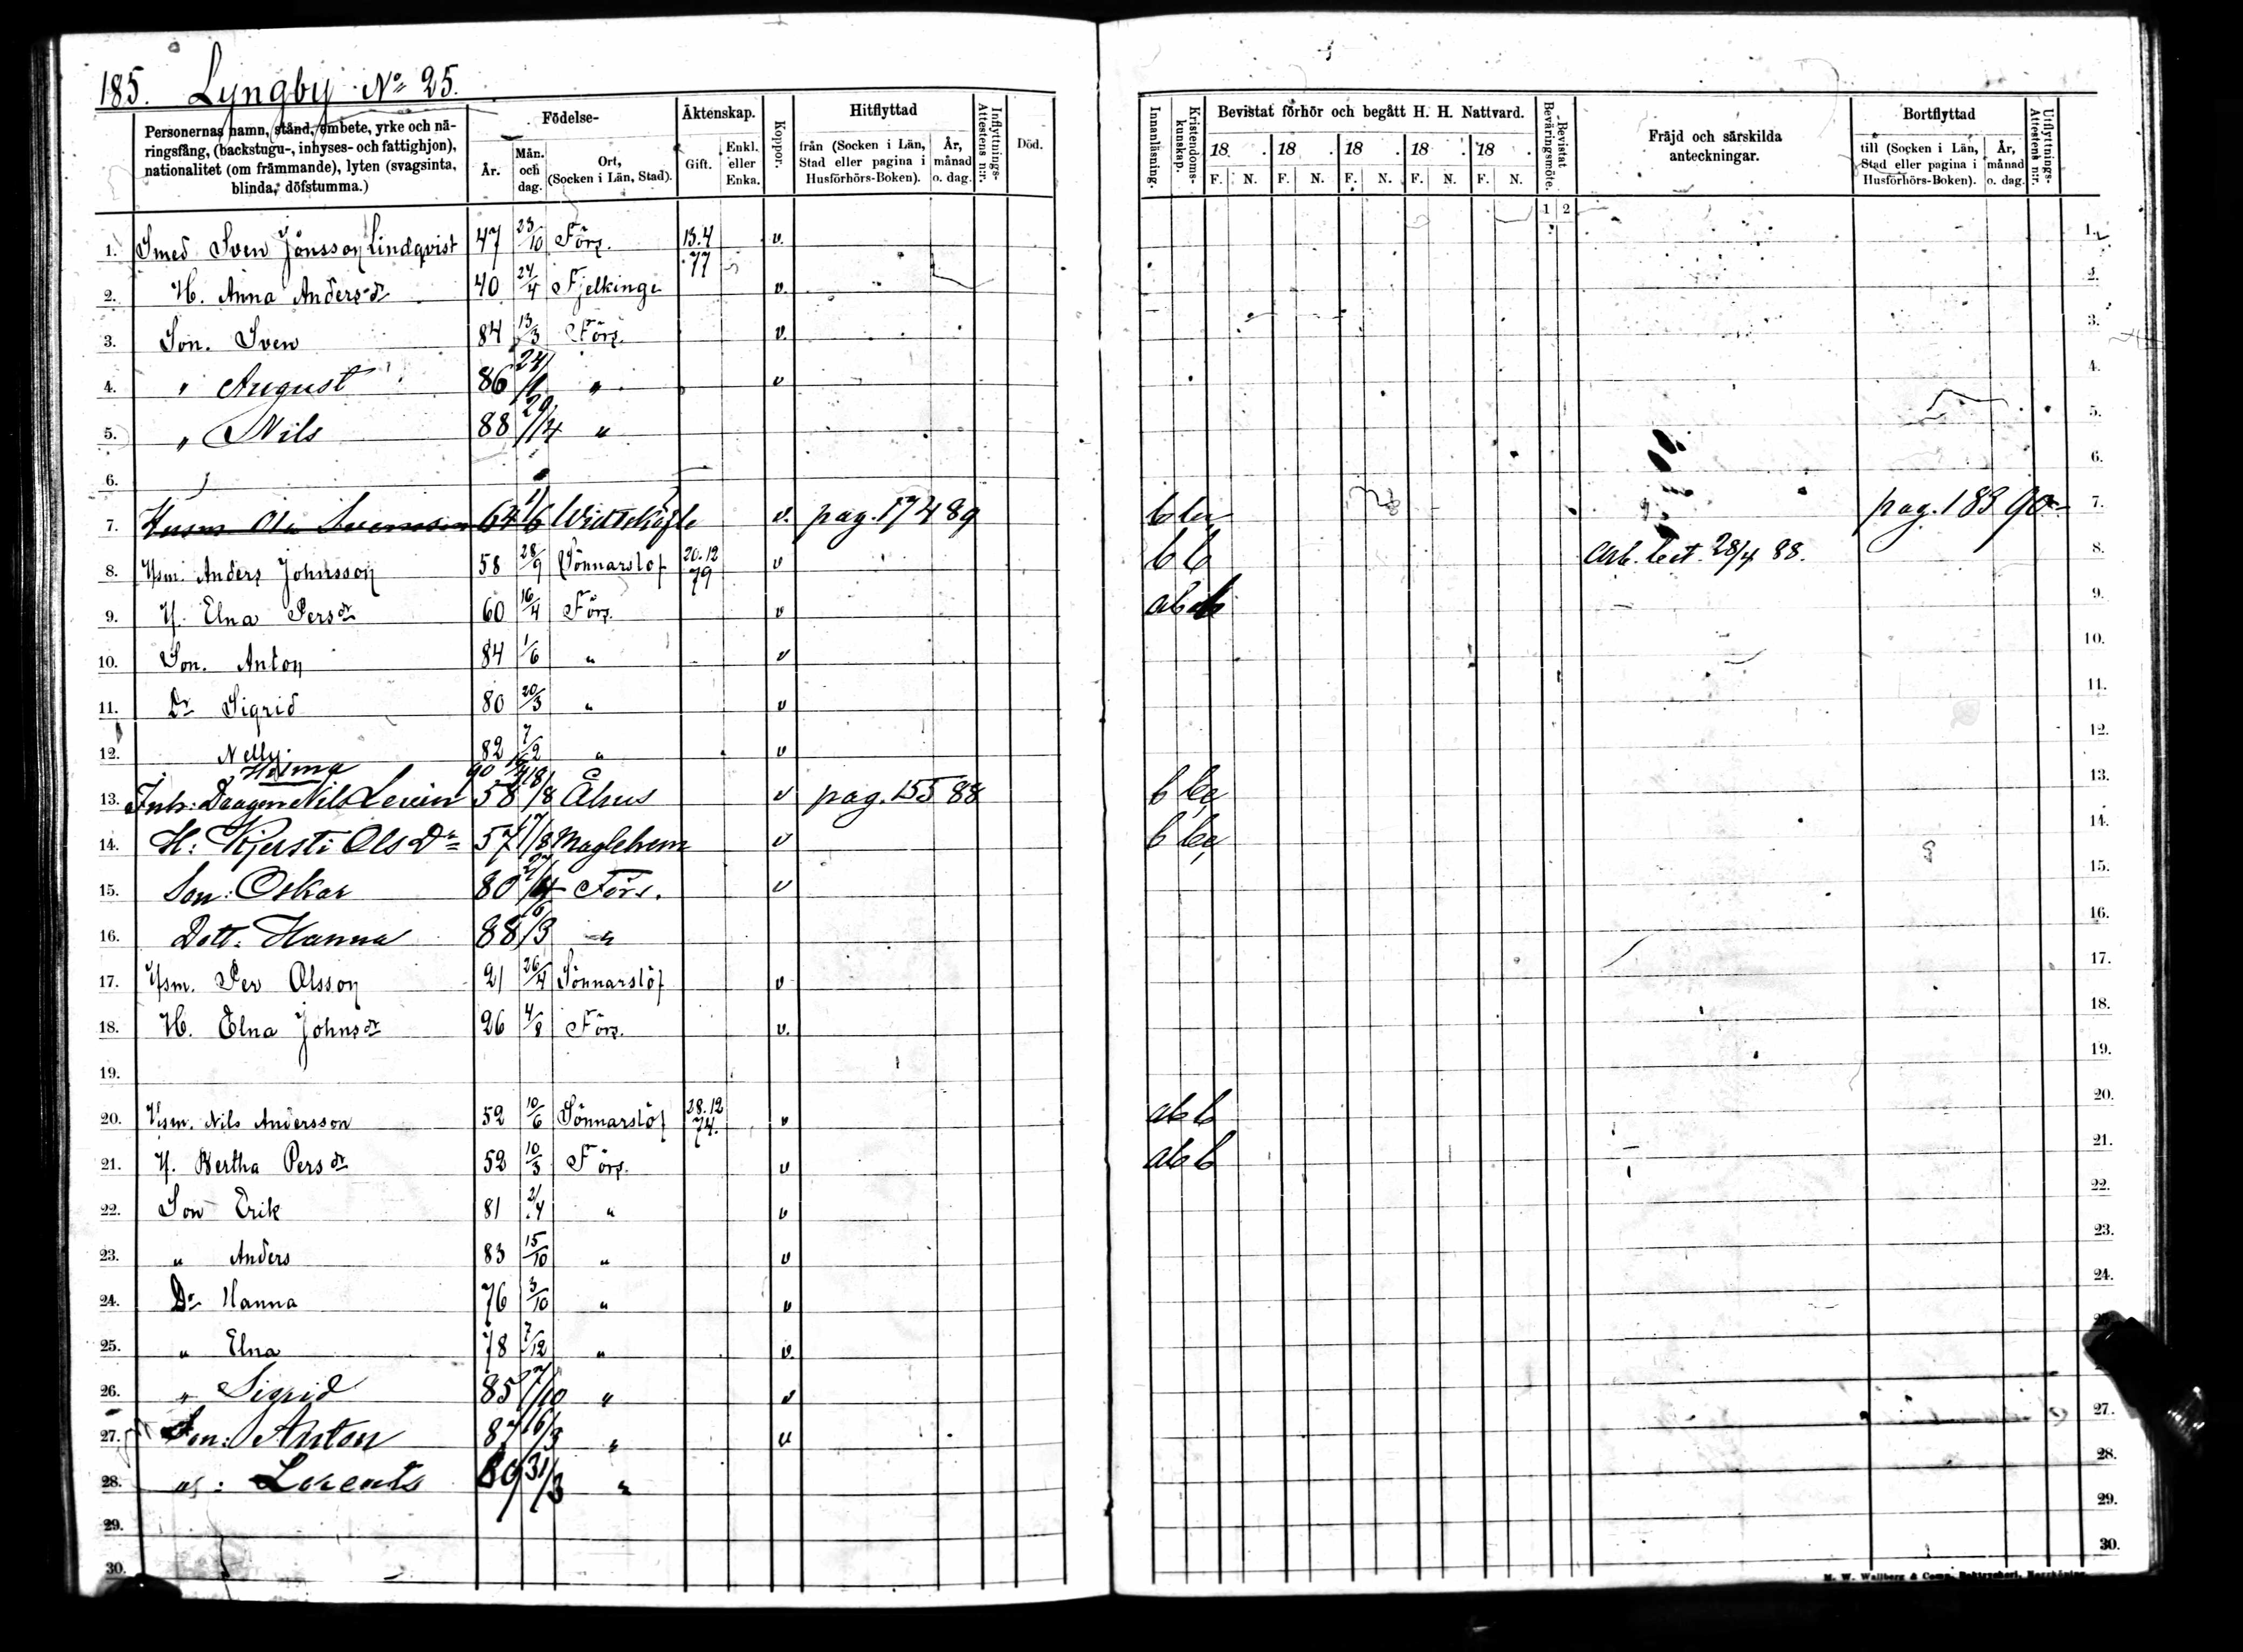 185. Lyngby No 25.
Personernas namn, stånd, embete, yrke och näringsfång, (backstugu-, inhyses- och fattighjon), nationalitet (om främmande), lyten (svagsinta, blinda, döfstumma.)
Födelse-
År. Mån. och dag. Ort, (Socken i Län, Stad).
Äktenskap.
Gift. Enkl. eller Enka.
Koppor.
Hitflyttad
från (Socken i Län, Stad eller pagina i Husförhörs-Boken). År, månad o. dag.
Inflyttnings-Attestens n:r.
Död.
Innanläsning. Kristendoms-kunskap.
Bevistat förhör och begått H. H. Nattvard.
18 . 18 . 18 . 18 . 18 .
F. N. F. N. F. N. F. N. F. N.
Bevistat Beväringsmöte. 1 2
Fräjd och särskilda anteckningar.
Bortflyttad
till (Socken i Län, Stad eller pagina i Husförhörs-Boken). År, månad o. dag.
Utflyttnings-Attestens n:r.
1. Smed Sven Jönsson Lindqvist 47 23/10 Förs. 13.4 77 v. 1.
2. H. Anna Andersdr 40 24/4 Fjelkinge v. 2.
3. Son. Sven 84 13/3 Förs. v. 3.
4. " August 86 24/1 " v 4.
5. " Nils 88 29/4 " 5.
6. 6.
7. Husm Ola Svensson 64 1/6 v. pag. 174 89 pag. 183 90 7.
8. Hsm. Anders Johnsson 58 28/9 Sönnarslöf 20.12 79 v b b 28/4 88. 8.
9. H. Elna Persdr 60 16/4 Förs. v ab 9.
10. Son. Anton 84 1/6 " v 10.
11. Dr Sigrid 80 20/3 " v 11.
12. Nelly 82 7/2 " v 12.
90
13. Inh: Nils Levin 58 18/8 Åhus v pag. 155 88 13.
14. H: Kjersti Ols Dr 57 17/8 Maglehem v 14.
15. Son: Oskar 80 27/4 Förs. v 15.
16. Dott. Hanna 88 6/3 " 16.
17. Hsm. Per Olsson 21 26/4 Sönnarslöf v 17.
18. H. Elna Johnsdr 26 4/8 Förs. v. 18.
19. 19.
20. Hsm. Nils Andersson 52 10/6 Sönnarslöf 28.12 74. v ab b 20.
21. H. Bertha Persdr 52 10/3 Förs. v ab b 21.
22. Son Erik 81 2/4 " v 22.
23. " Anders 83 15/10 " v 23.
24. Dr Hanna 76 3/10 " v 24.
25. " Elna 78 7/12 " v.
26. " Sigrid 85 17/10 " v
27. Son: Anton 87 16/3 " v 27.
28. " : Lorents 89 31/3 " 28.
29. 29.
30. 30.
M. W. Wallberg & Comp. Boktryckeri, Norrköping.